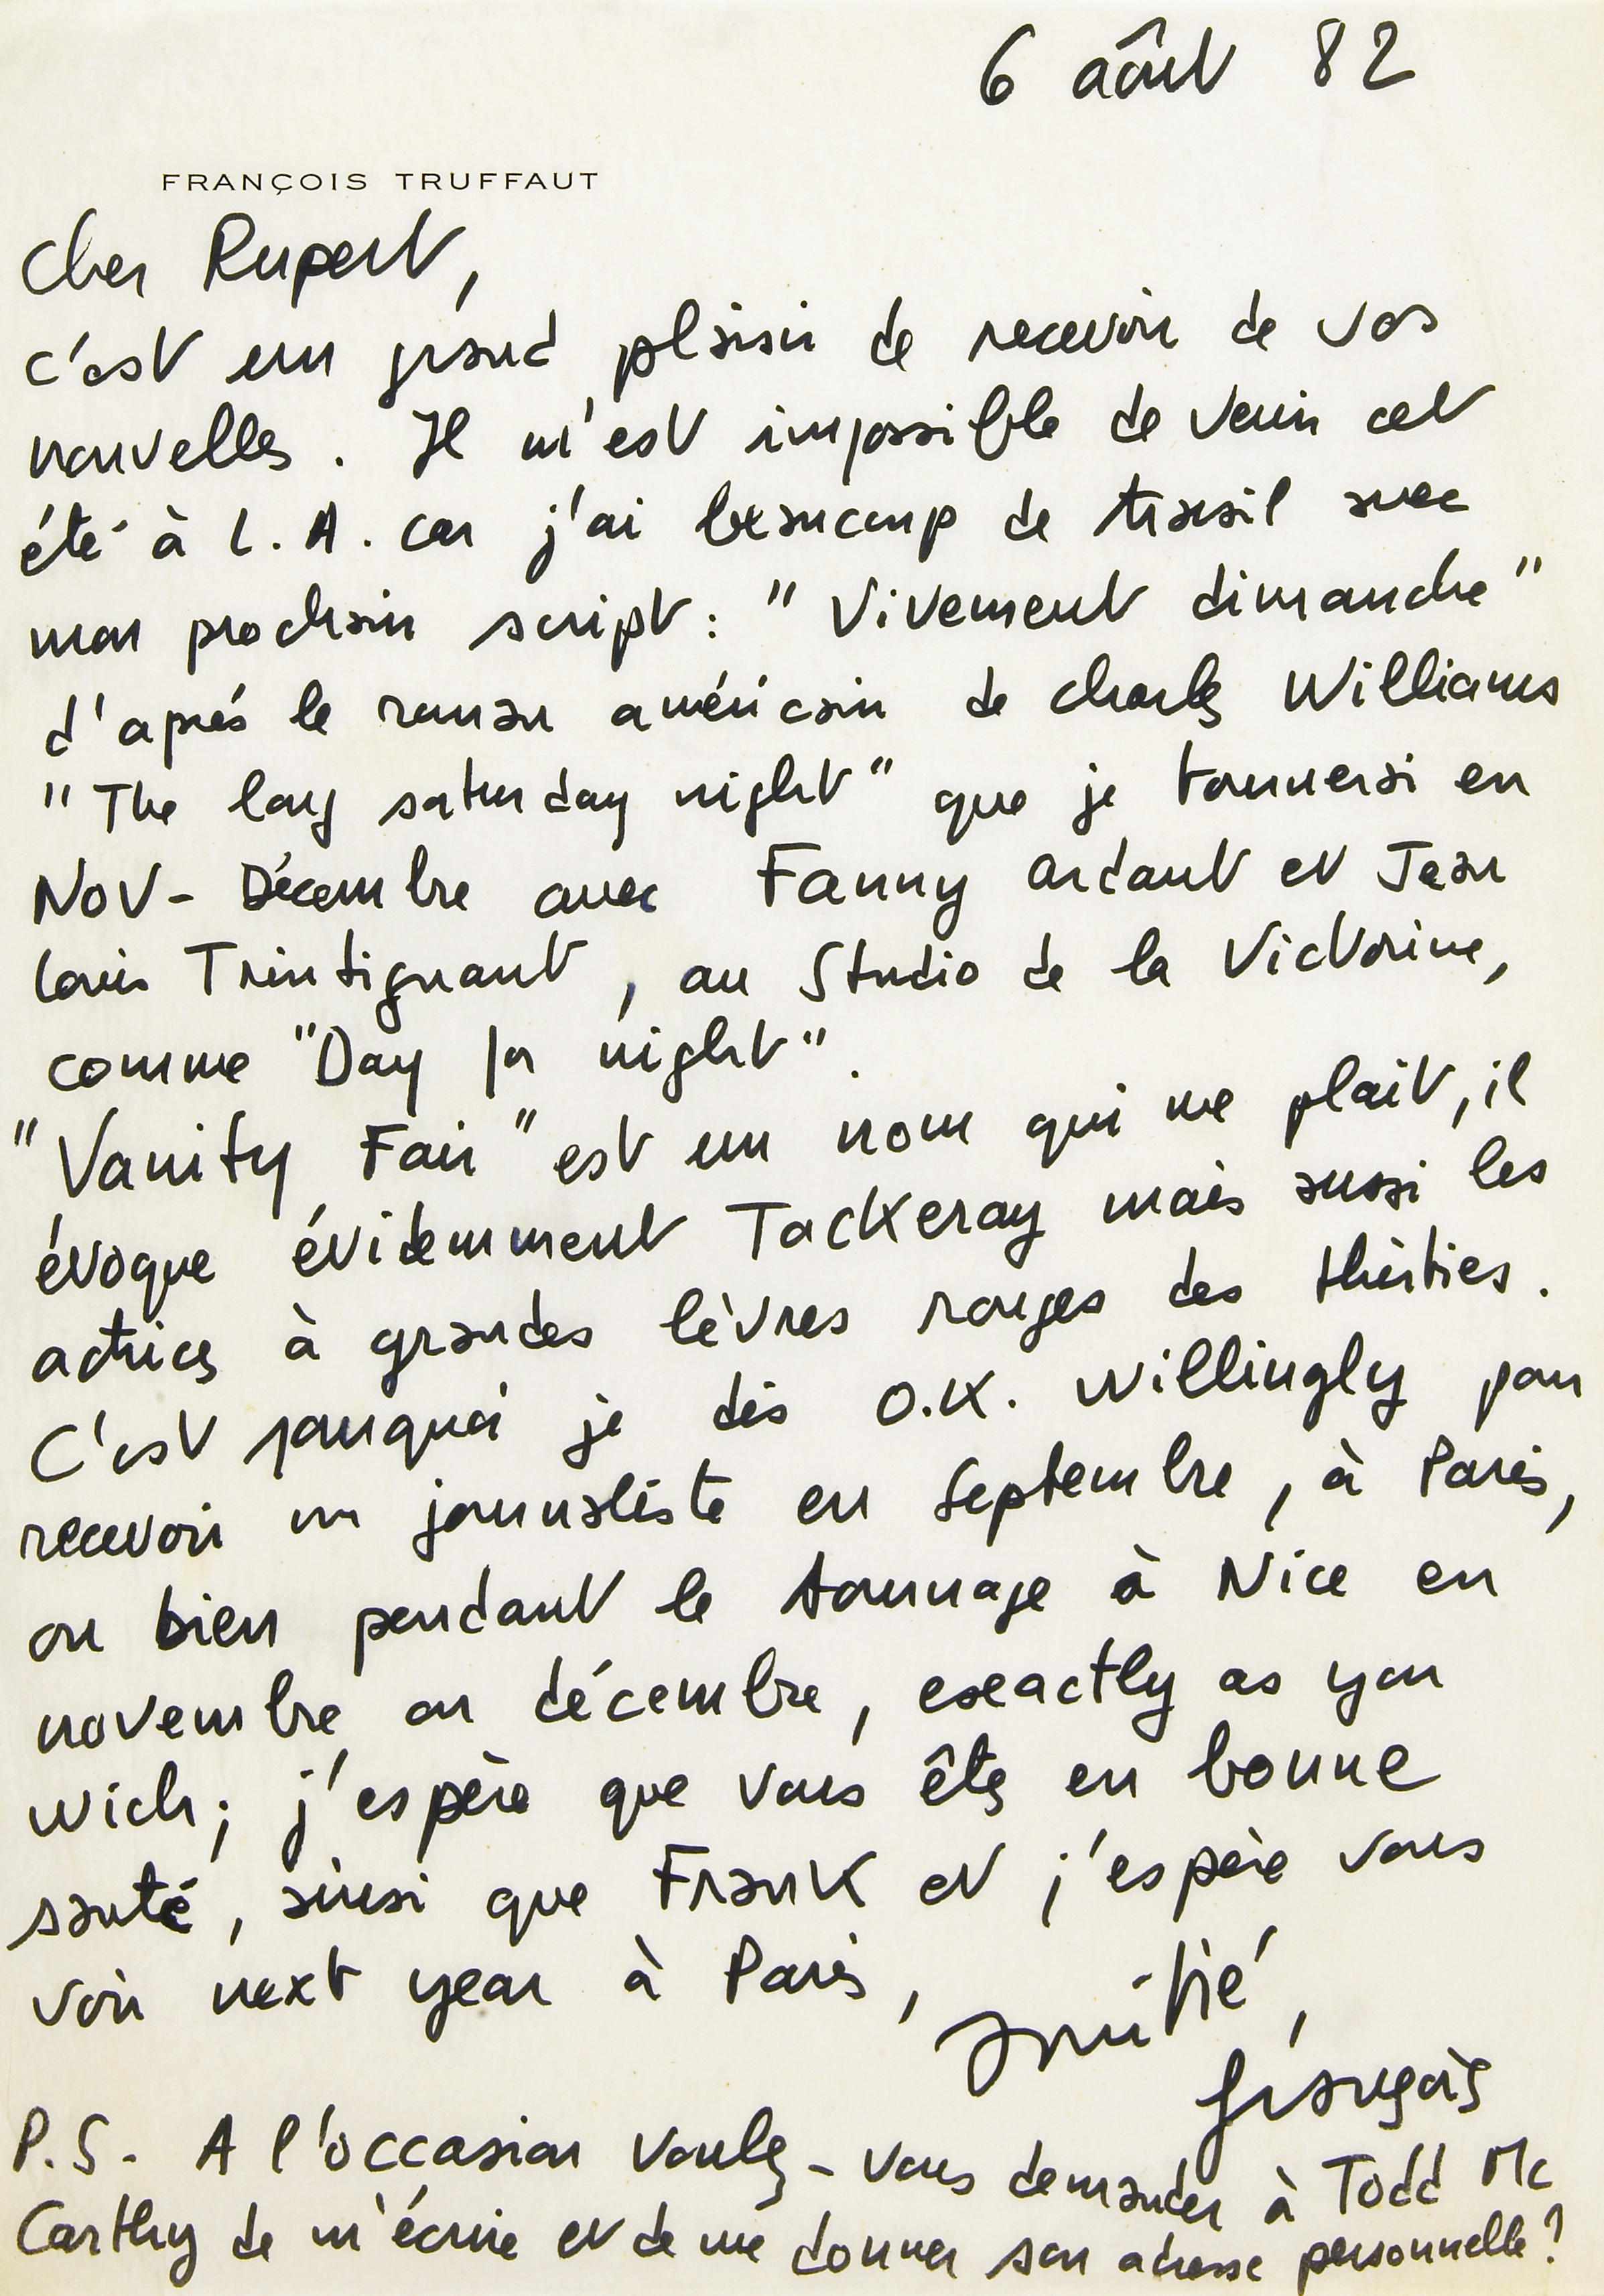 6 août 82
FRANÇOIS TRUFFAUT
Cher Rupert,
c'est un grand plaisir de recevoir de vos
nouvelles. Il m'est impossible de venir cet
été à L.A. car j'ai beaucoup de travail avec
mon prochain script : "Vivement dimanche"
d'aprés le roman américain de Charles Williams
"The long saturday night" que je tournerai en
Nov - Décembre avec Fanny Ardant et Jean
Louis Trintignant, au Studio de la Victorine,
comme "Day for night".
"Vanity Fair" est un nom qui me plait, il
évoque évidemment Tackeray mais aussi les
actrices à grandes lèvres rouges des thirties.
C'est pourquoi je dis O.K. willingly pour
recevoir un journaliste en Septembre, à Paris,
ou bien pendant le tournage à Nice en
novembre ou décembre, exeactly as you
wich; j'espère que vous êtes en bonne
santé, ainsi que Frank et j'espère vous
voir next year à Paris,
amitié,
françois
P.S. - A l'occasion voulez-vous demander à Todd Mc
Carthy de m'écrire et de me donner son adresse personnelle?